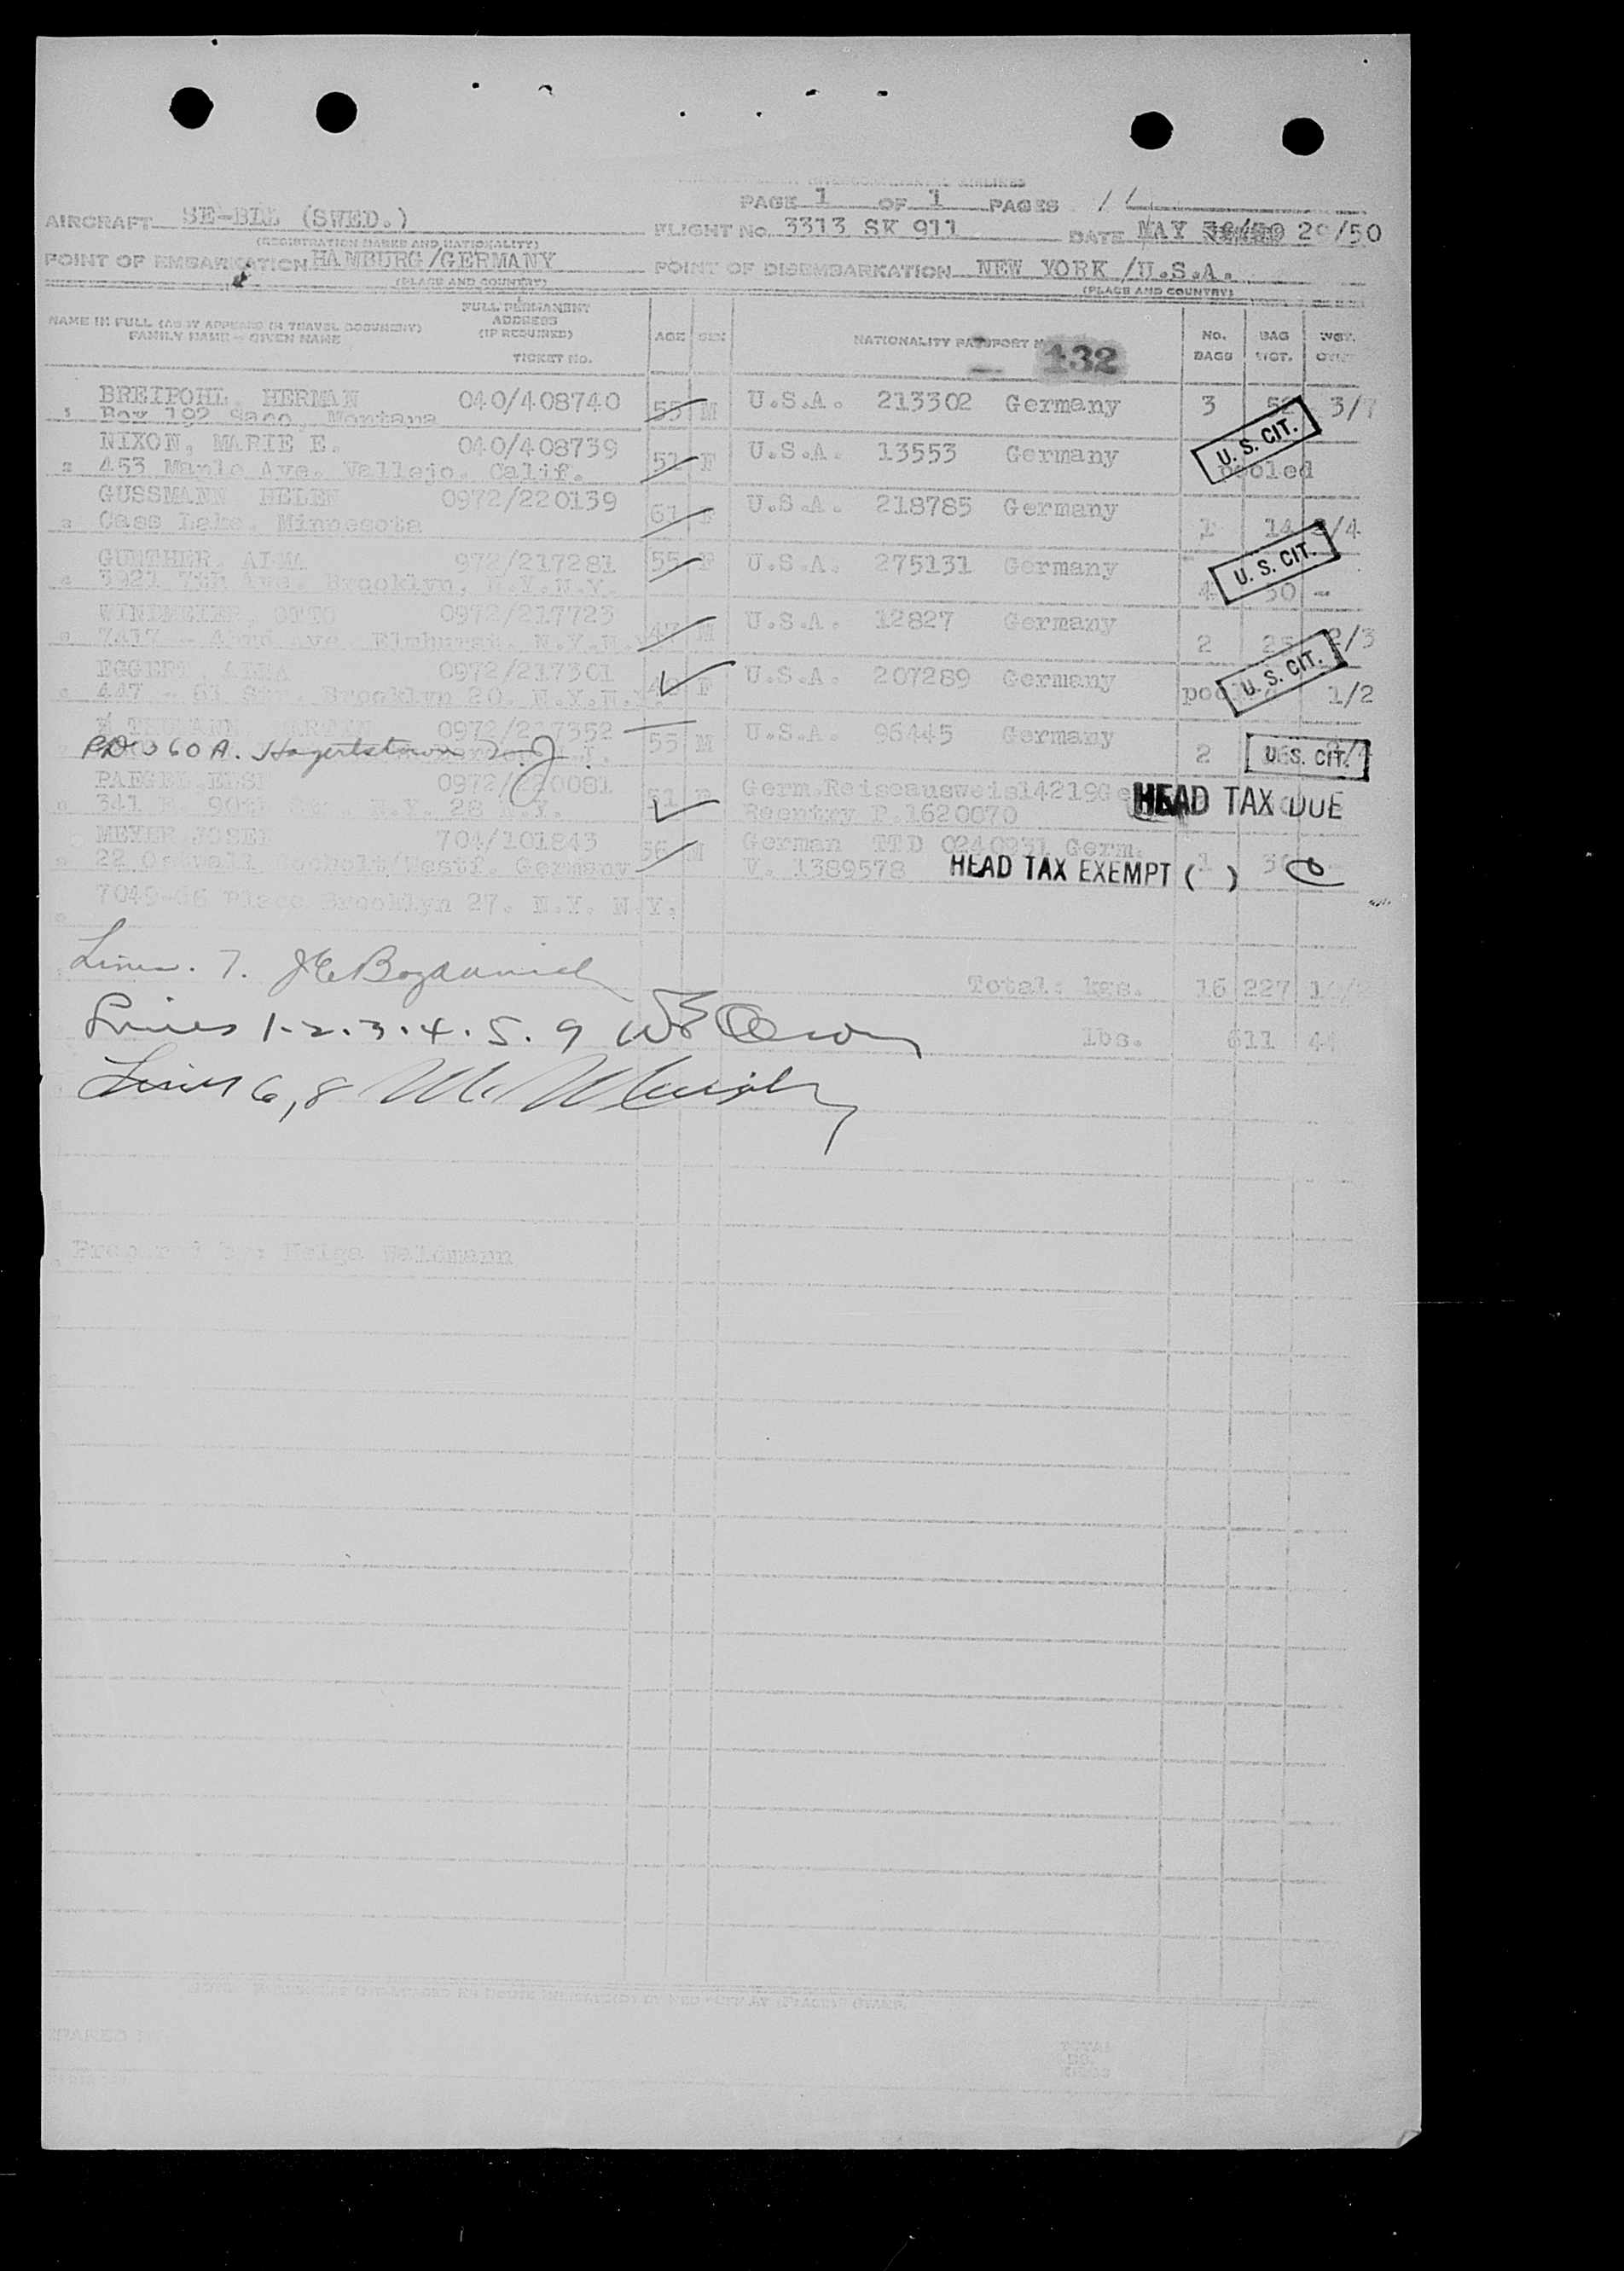 INTERCONTINENTAL AIRLINES
PAGE 1 OF 1 PAGES
AIRCRAFT SE-BDL (SWED.) FLIGHT NO. 3313 SK 911 DATE MAY 29/50
(REGISTRATION MARKS AND NATIONALITY)
POINT OF EMBARKATION HAMBURG/GERMANY POINT OF DISEMBARKATION NEW YORK /U.S.A.
(PLACE AND COUNTRY) (PLACE AND COUNTRY)
NAME IN FULL (AS IT APPEARS IN TRAVEL DOCUMENT) FAMILY NAME - GIVEN NAME FULL PERMANENT ADDRESS (IF REQUIRED) TICKET NO. AGE SEX NATIONALITY PASSPORT 132 NO. BAGS BAG WGT. WGT.
BREIPOHL, HERMAN 040/408740 55 M U.S.A. 213302 Germany 3 52 3/7
1 Box 192 Saco, Montana
U. S. CIT.
NIXON, MARIE E. 040/408739 51 F U.S.A. 13553 Germany
2 453 Maple Ave. Vallejo. Calif. pooled
GUSSMANN HELEN 0972/220139 61 F U.S.A. 218785 Germany
3 Cass Lake, Minnesota 1 14 /4
U. S. CIT.
GUNTHER, ALMA 972/217281 55 F U.S.A. 275131 Germany
3921 7th Ave. Brooklyn, N.Y.N.Y. 4 50 -
WINDMEIER, OTTO 0972/217723 47 M U.S.A. 12827 Germany
7417 - 42nd Ave. Elmhurst. N.Y.N. 2 25 2/3
U. S. CIT.
EGGERT, ALMA 0972/217301 F U.S.A. 207289 Germany
447 - 61 Str. Brooklyn 20. N.Y.N.Y. 1/2
MARTIN 0972/217352 55 M U.S.A. 96445 Germany
360 A. N.J. 2 U.S. CIT.
PAEGEL ELSE 0972/220081 51 F Germ.Reiseausweis14219Ge HEAD TAX DUE
341 E. 90th Str. N.Y. 28 N.Y. Reentry P.1620070
MEYER JOSEF 704/101843 56 M German TTD 0240931 Germ.
22 Ostwall Bocholt/Westf. Germany V. 1389578 HEAD TAX EXEMPT ( ) 1
Place Brooklyn 27. N.Y. N.Y.
Lines. 7.
Total: kgs. 16 227
Lines 1-2.3.4.5.9
lbs. 44
Lines 6,8
Prepared by: Helga Waldmann